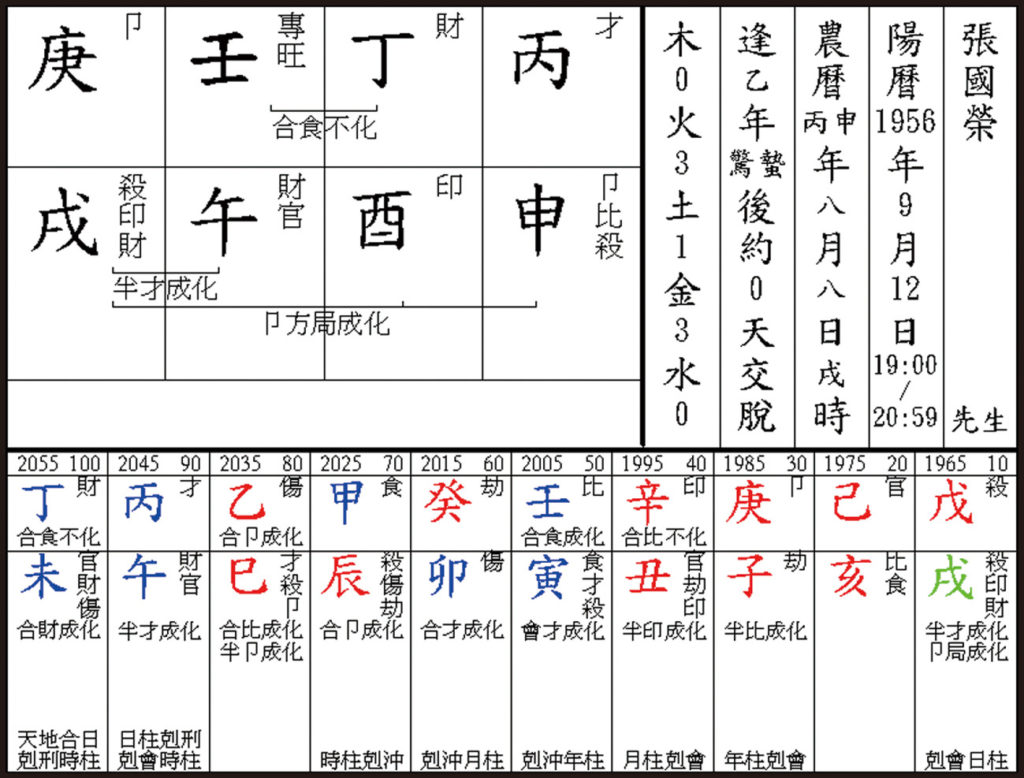 張國榮 先生
陽曆1956年9月12日19:00/20:59
農曆丙申年八月八日戌時
逢乙年驚蟄後約0天交脫
木0火3土1金3水0
才
丙
財
丁
專旺
壬
卩
庚
合食不化
卩比殺
申
印
酉
財官
午
殺印財
戌
半才成化
卩方局成化
1965 10
殺
戊
殺印財
戌
半才成化
卩局成化
剋會日柱
1975 20
官
己
比食
亥
1985 30
卩
庚
劫
子
半比成化
年柱剋會
1995 40
印
辛
合比不化
官劫印
丑
半印成化
月柱剋會
2005 50
比
壬
合食成化
食才殺
寅
會才成化
剋沖年柱
2015 60
劫
癸
傷
卯
合才成化
剋沖月柱
2025 70
食
甲
殺傷劫
辰
合卩成化
時柱剋沖
2035 80
傷
乙
合卩成化
才殺卩
巳
合比成化
半卩成化
2045 90
才
丙
財官
午
半才成化
日柱剋刑
剋會時柱
2055 100
財
丁
合食不化
官財傷
未
合財成化
天地合日
剋刑時柱